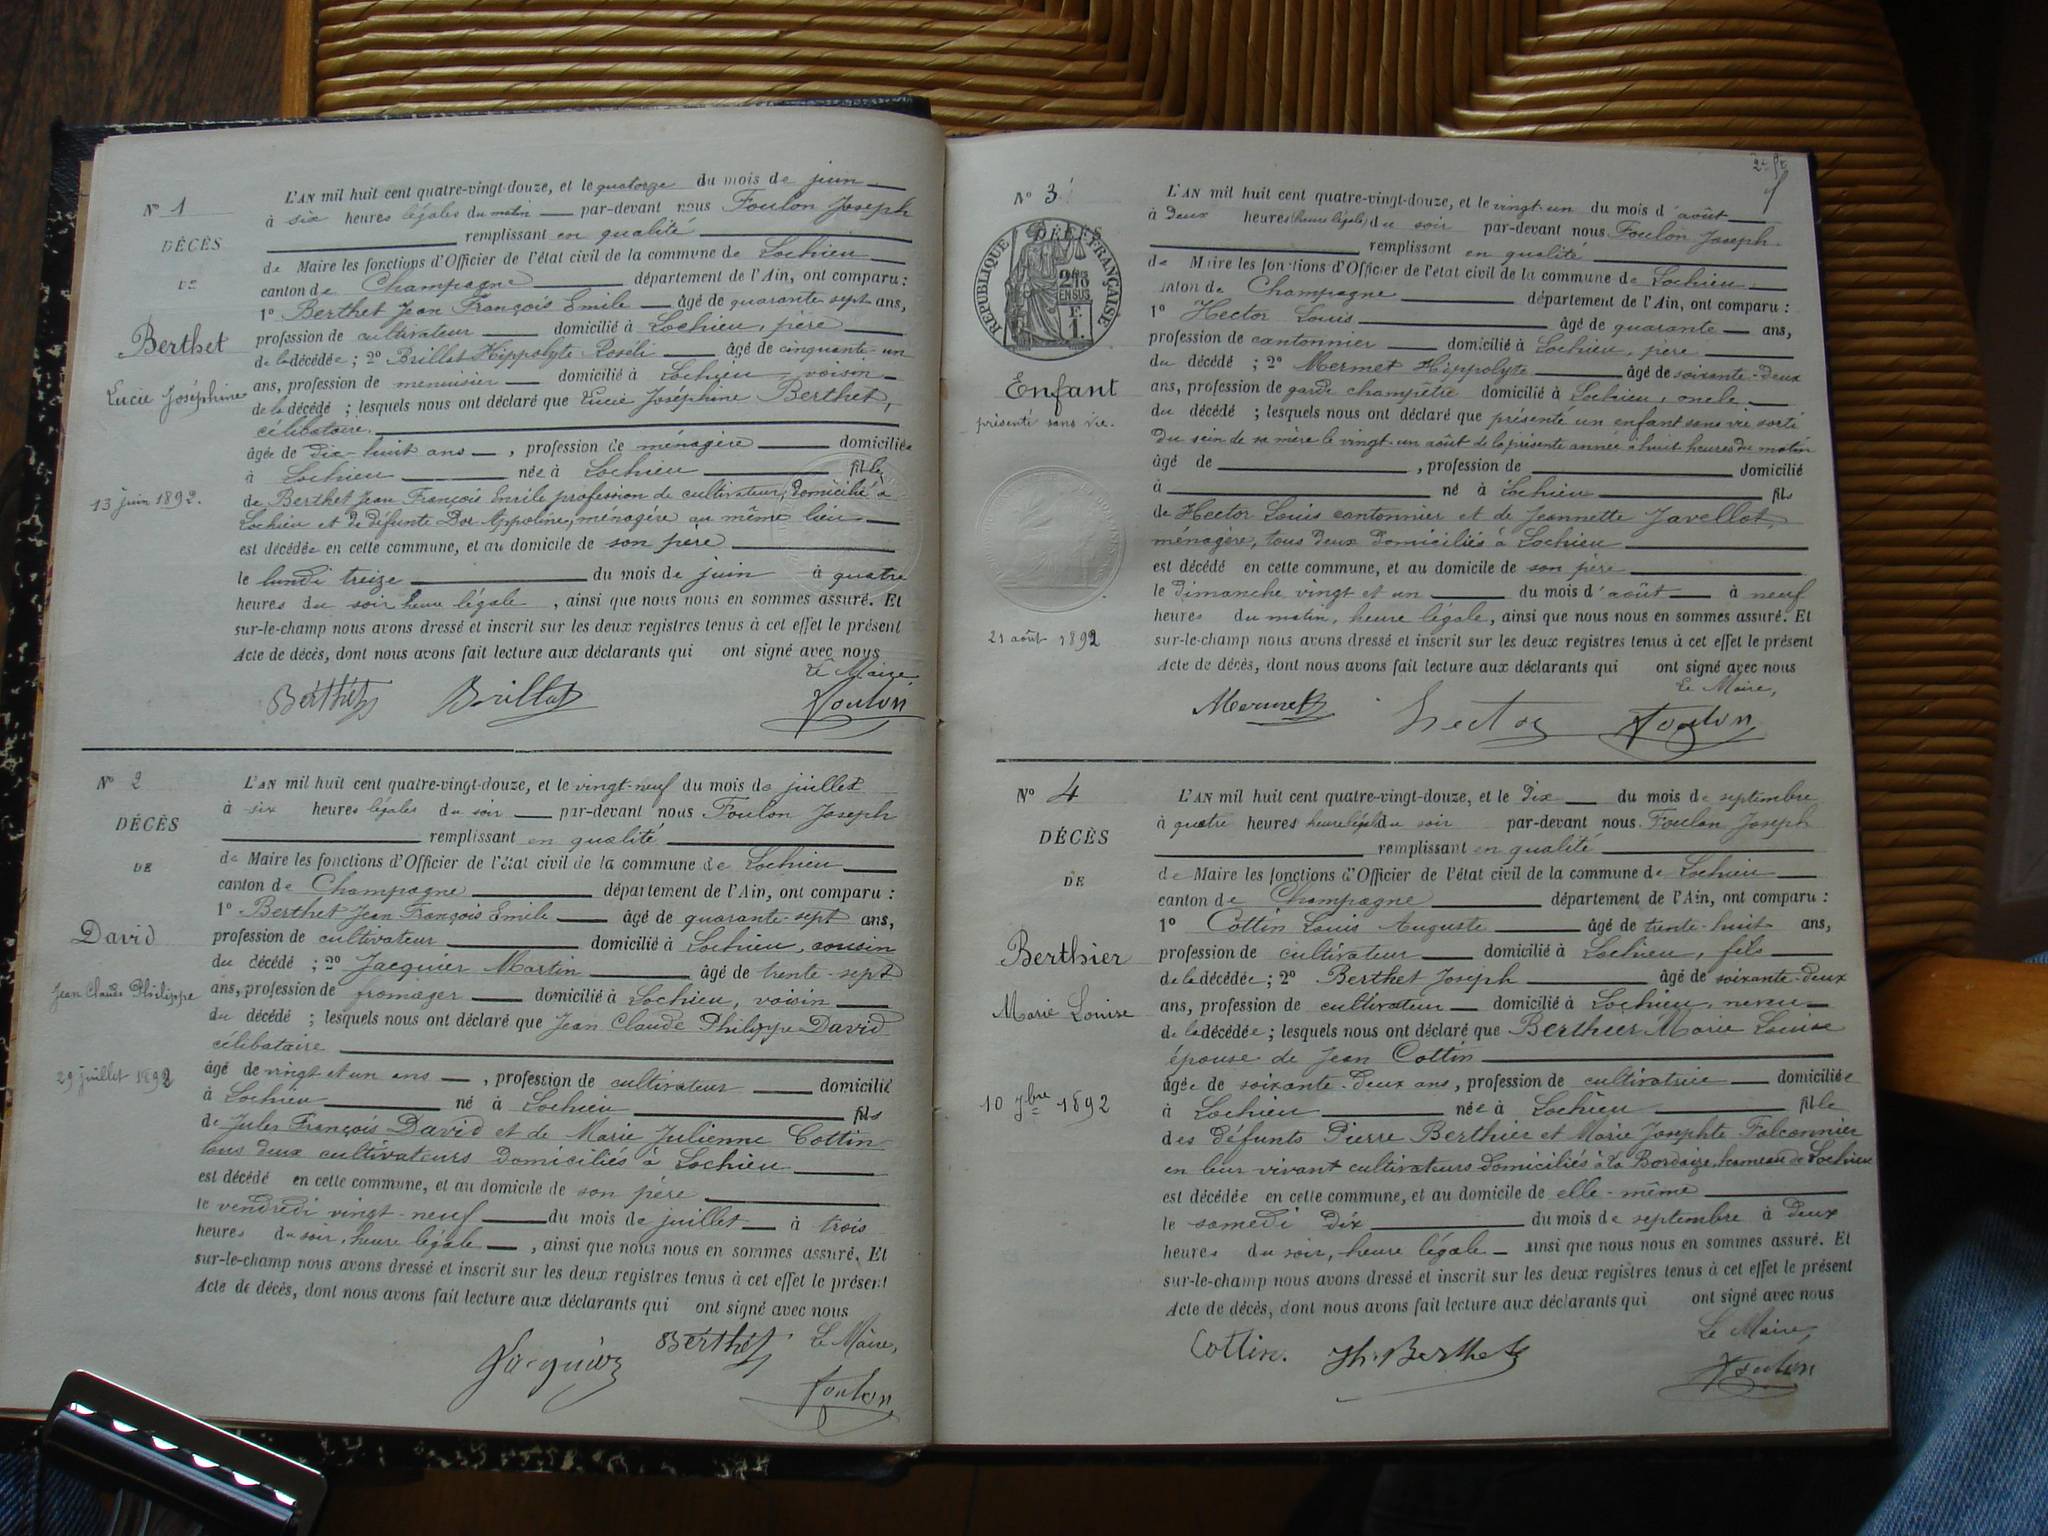 N° 1
DÉCÈS
DE
Berthet
Lucie Joséphine
13 juin 1892.
L'AN mil huit cent quatre-vingt-douze, et le quatorze du mois de juin
à six heures légales du matin par-devant nous Foulon Joseph
remplissant en qualité
de Maire les fonctions d'Officier de l'état civil de la commune de Lochieu
canton de Champagne département de l'Ain, ont comparu :
1° Berthet Jean François Emile âgé de quarante sept ans,
profession de cultivateur domicilié à Lochieu, père
de la décédée ; 2° Brillat Hippolyte âgé de cinquante-un
ans, profession de menuisier domicilié à Lochieu voisin
de la décédé ; lesquels nous ont déclaré que Lucie Joséphine Berthet,
célibataire.
âgée de dix-huit ans , profession de ménagère domiciliée
à Lochieu née à Lochieu fille
de Berthet Jean François Emile profession de cultivateur, domicilié à
Lochieu et de défunte Appoline, ménagère au même lieu
est décédée en cette commune, et au domicile de son père
le lundi treize du mois de juin à quatre
heures du soir heure légale , ainsi que nous nous en sommes assuré. Et
sur-le-champ nous avons dressé et inscrit sur les deux registres tenus à cet effet le présent
Acte de décès, dont nous avons fait lecture aux déclarants qui ont signé avec nous
Le Maire,
Berthet Brillat Foulon
N° 2
DÉCÈS
DE
David
Jean Claude Philippe
29 juillet 1892
L'AN mil huit cent quatre-vingt-douze, et le vingt-neuf du mois de juillet
à six heures légales du soir par-devant nous Foulon Joseph
remplissant en qualité
de Maire les fonctions d'Officier de l'état civil de la commune de Lochieu
canton de Champagne département de l'Ain, ont comparu :
1° Berthet Jean François Emile âgé de quarante-sept ans,
profession de cultivateur domicilié à Lochieu, cousin
du décédé ; 2° Jacquier Martin âgé de trente-sept
ans, profession de fromager domicilié à Lochieu, voisin
du décédé ; lesquels nous ont déclaré que Jean Claude Philippe David
célibataire
âgé de vingt et un ans , profession de cultivateur domicilié
à Lochieu né à Lochieu fils
de Jules François David et de Marie Julienne Cottin
tous deux cultivateurs domiciliés à Lochieu
est décédé en cette commune, et au domicile de son père
le vendredi vingt-neuf du mois de juillet à trois
heures du soir, heure légale , ainsi que nous nous en sommes assuré. Et
sur-le-champ nous avons dressé et inscrit sur les deux registres tenus à cet effet le présent
Acte de décès, dont nous avons fait lecture aux déclarants qui ont signé avec nous
Jacquier Berthet Le Maire,
Foulon
N° 3
DÉCÈS
RÉPUBLIQUE FRANÇAISE
2/10 EN SUS
F. 1.
Enfant
présenté sans vie.
21 août 1892
L'AN mil huit cent quatre-vingt-douze, et le vingt-un du mois d'août
à deux heures (heure légale) du soir par-devant nous Foulon Joseph
remplissant en qualité
de Maire les fonctions d'Officier de l'état civil de la commune de Lochieu
canton de Champagne département de l'Ain, ont comparu :
1° Hector Louis âgé de quarante ans,
profession de cantonnier domicilié à Lochieu, père
du décédé ; 2° Mermet Hippolyte âgé de soixante-deux
ans, profession de garde champêtre domicilié à Lochieu, oncle
du décédé ; lesquels nous ont déclaré que présenté un enfant sans vie sorti
du sein de sa mère le vingt-un août de la présente année à huit heures du matin
âgé de , profession de domicilié
à né à Lochieu fils
de Hector Louis cantonnier et de Jeannette Javellot,
ménagère, tous deux domiciliés à Lochieu
est décédé en cette commune, et au domicile de son père
le dimanche vingt et un du mois d'août à neuf
heures du matin, heure légale, ainsi que nous nous en sommes assuré. Et
sur-le-champ nous avons dressé et inscrit sur les deux registres tenus à cet effet le présent
Acte de décès, dont nous avons fait lecture aux déclarants qui ont signé avec nous
Le Maire,
Mermet Hector Foulon
N° 4
DÉCÈS
DE
Berthier
Marie Louise
10 7bre 1892
L'AN mil huit cent quatre-vingt-douze, et le dix du mois de septembre
à quatre heures heure légale du soir par-devant nous Foulon Joseph
remplissant en qualité
de Maire les fonctions d'Officier de l'état civil de la commune de Lochieu
canton de Champagne département de l'Ain, ont comparu :
1° Cottin Louis Auguste âgé de trente-huit ans,
profession de cultivateur domicilié à Lochieu, fils
de la décédée ; 2° Berthet Joseph âgé de soixante-deux
ans, profession de cultivateur domicilié à Lochieu, neveu
de la décédée ; lesquels nous ont déclaré que Berthier Marie Louise
épouse de Jean Cottin
âgée de soixante-deux ans, profession de cultivatrice domiciliée
à Lochieu née à Lochieu fille
des défunts Pierre Berthier et Marie Josephte Falconnier
en leur vivant cultivateurs domiciliés à la hameau de Lochieu
est décédée en cette commune, et au domicile de elle-même
le samedi dix du mois de septembre à deux
heures du soir, heure légale ainsi que nous nous en sommes assuré. Et
sur-le-champ nous avons dressé et inscrit sur les deux registres tenus à cet effet le présent
Acte de décès, dont nous avons fait lecture aux déclarants qui ont signé avec nous
Le Maire,
Cottin. Jh. Berthet Foulon